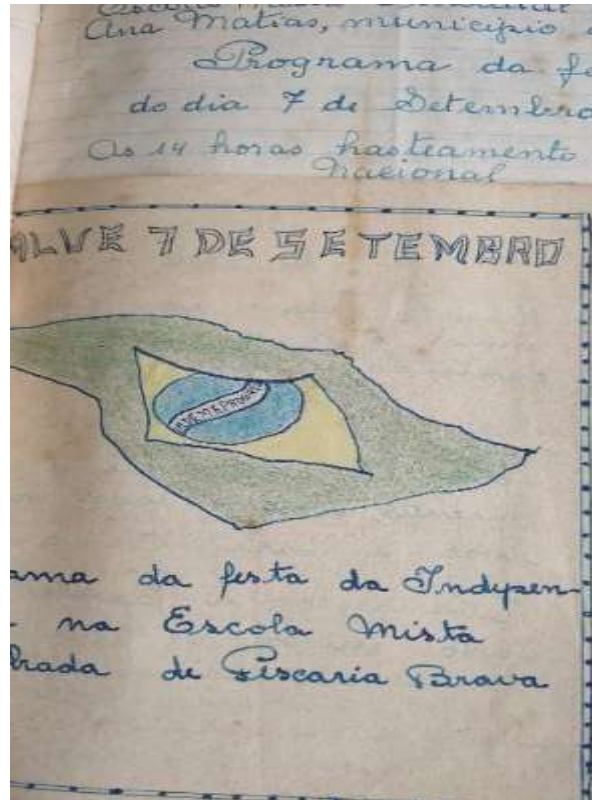 Ana Matias, municipio
Programa da fe
do dia 7 de Setembro
As 14 horas hasteamento
Nacional
ALVE 7 DE SETEMBRO
ORDEM E PROGRE
ama da festa da Indepen-
na Escola Mista
brada de Piscaria Brava